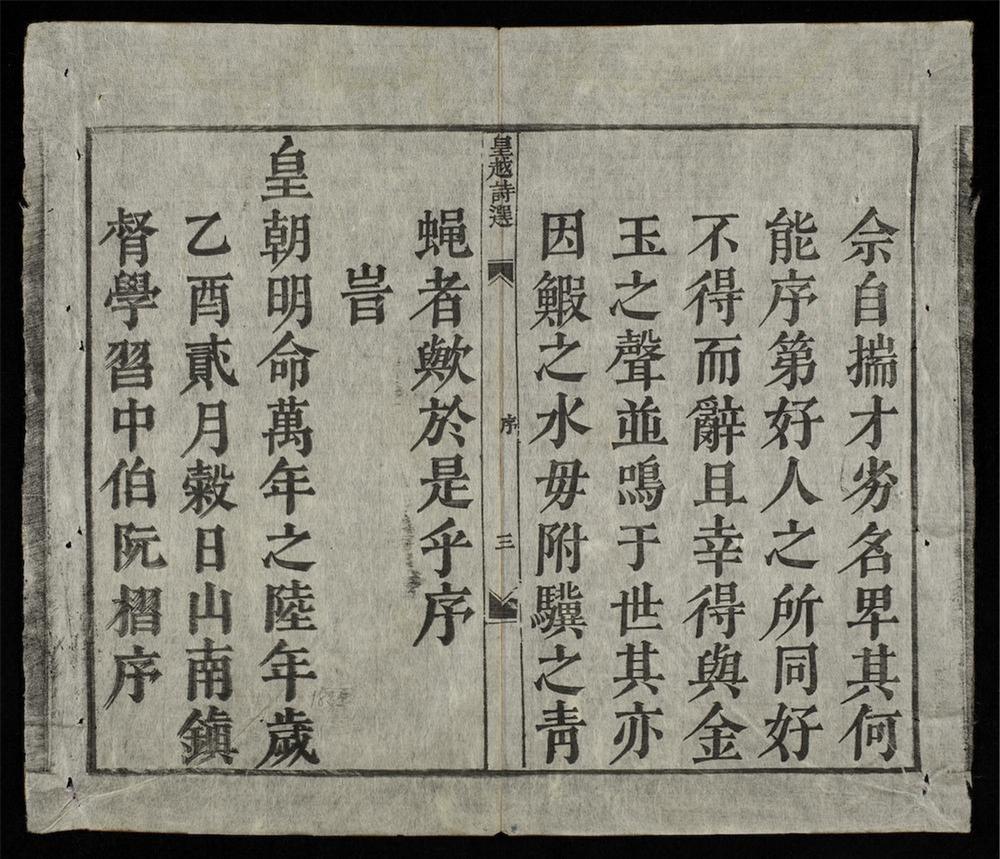 佘自揣才劣名卑其何
能序第好人之所同好
不得而辭且幸得與金
玉之聲並鳴于世其亦
因鰕之水毋附驥之靑
皇越詩選
序
三
蝇者歟於是乎序
旹
皇朝明命萬年之陸年歲
乙酉貳月穀日山南鎮
督學習中伯阮摺序